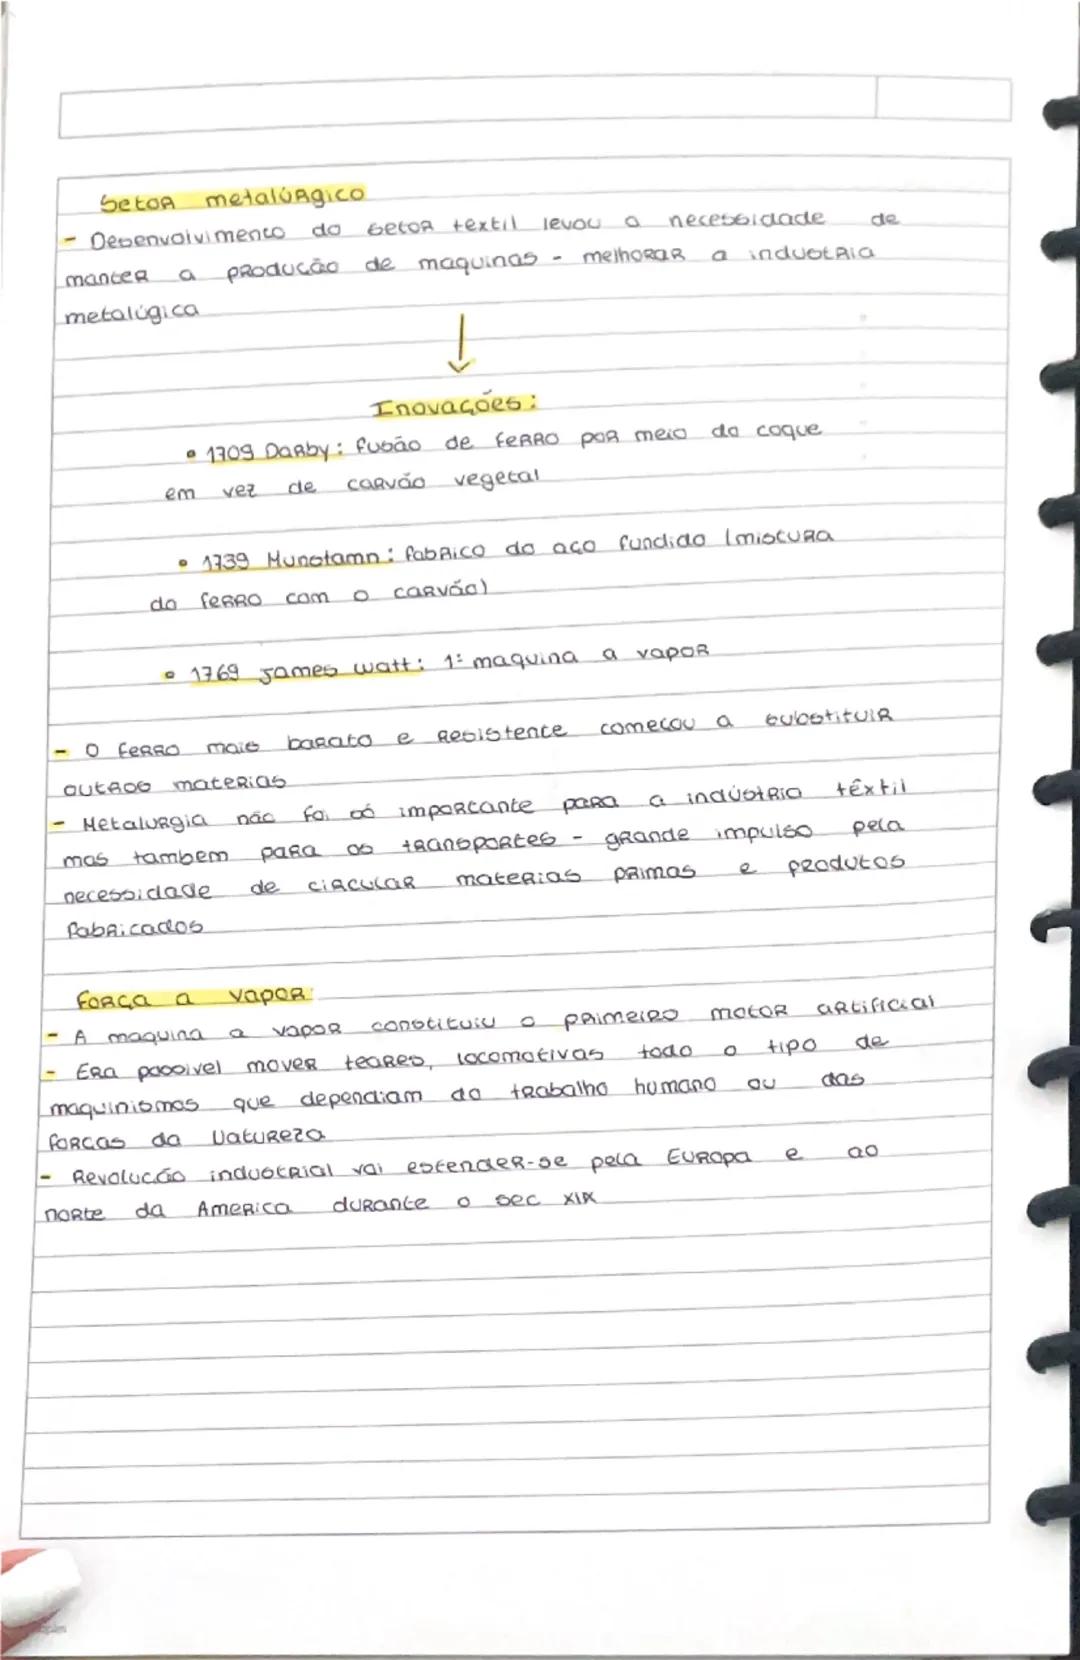 Setor metalúrgico
- Desenvolvimento do setor textil levou a necessidade de
manter a produção de maquinas - melhorar a industria
metalúgica
↓
Inovações:
• 1709 Darby: fusão de ferro por meio do coque
em vez de carvão vegetal
• 1739 Hunstamn: fabrico do aço fundido (mistura
do ferro com o carvão)
• 1769 James Watt: 1ª maquina a vapor
- O ferro mais barato e resistente começou a substituir
outros materias
- Metalurgia não foi só importante para a indústria têxtil
mas tambem para os transportes - grande impulso pela
necessidade de circular materias primas e produtos
fabricados
Força a vapor:
- A maquina a vapor constituiu o primeiro motor artificial
- Era possivel mover teares, locomotivas todo o tipo de
maquinismos que dependiam do trabalho humano ou das
forcas da Natureza
- Revolucão industrial vai estender-se pela Europa e ao
norte da America durante o sec XIX